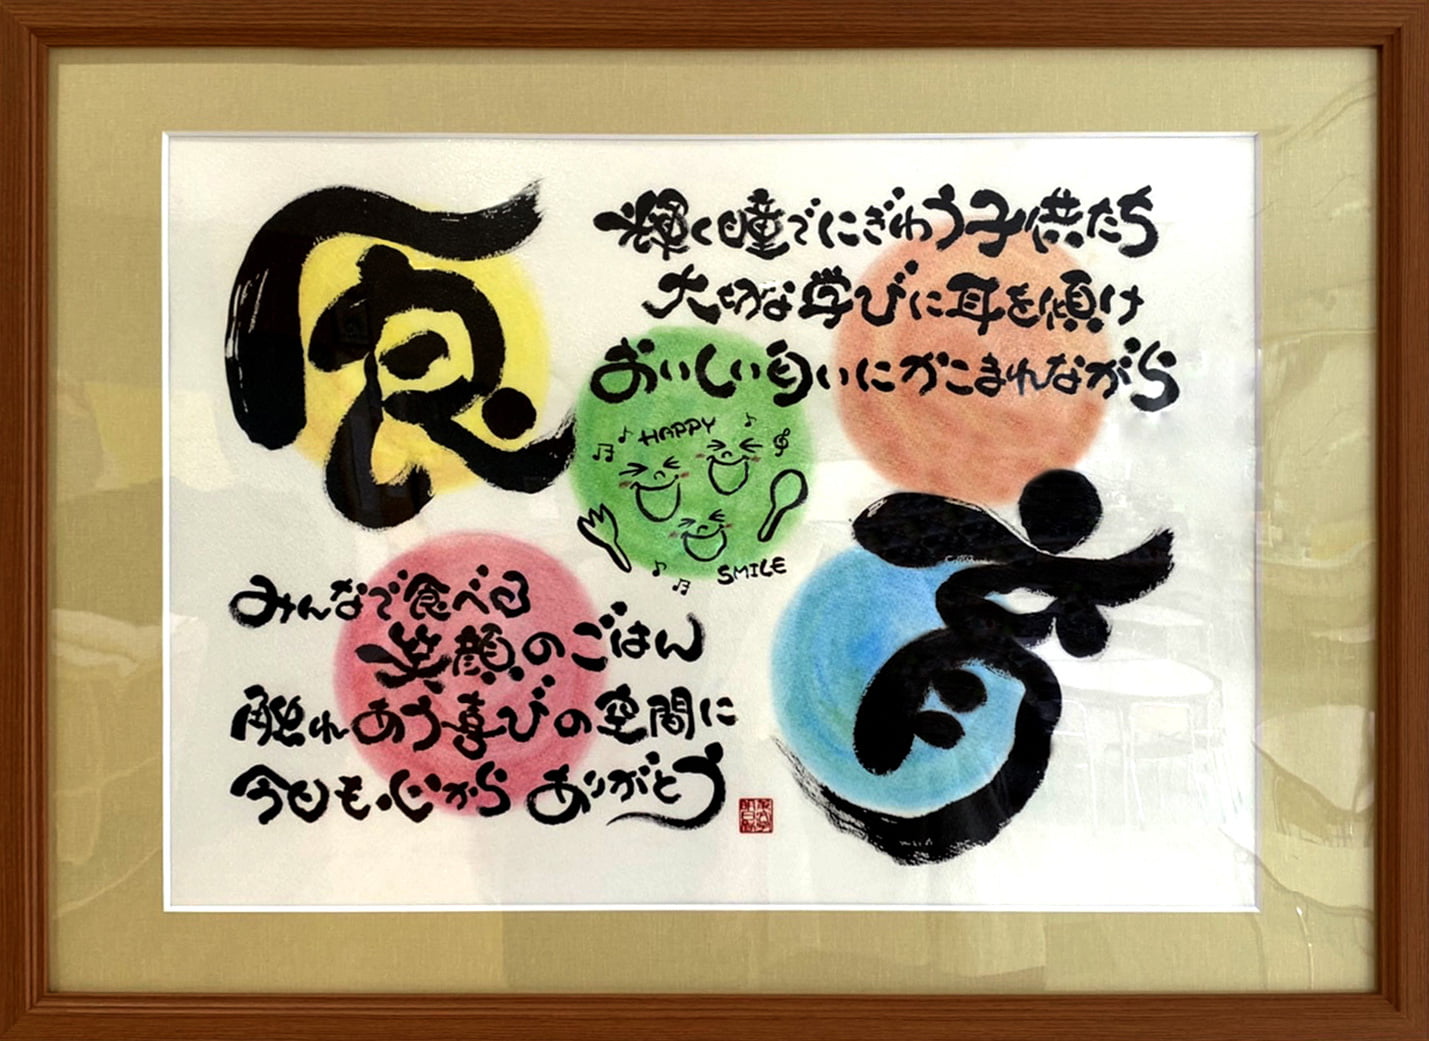 食
輝く瞳でにぎわう子供たち
大切な学びに耳を傾け
おいしい匂いにかこまれながら
HAPPY
SMILE
育
みんなで食べる
笑顔のごはん
触れあう喜びの空間に
今日も心から ありがとう